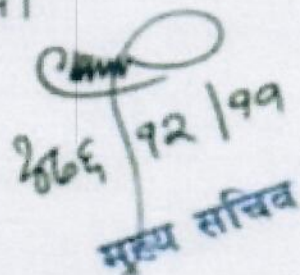 २०७६/१२/११
मुख्य सचिव